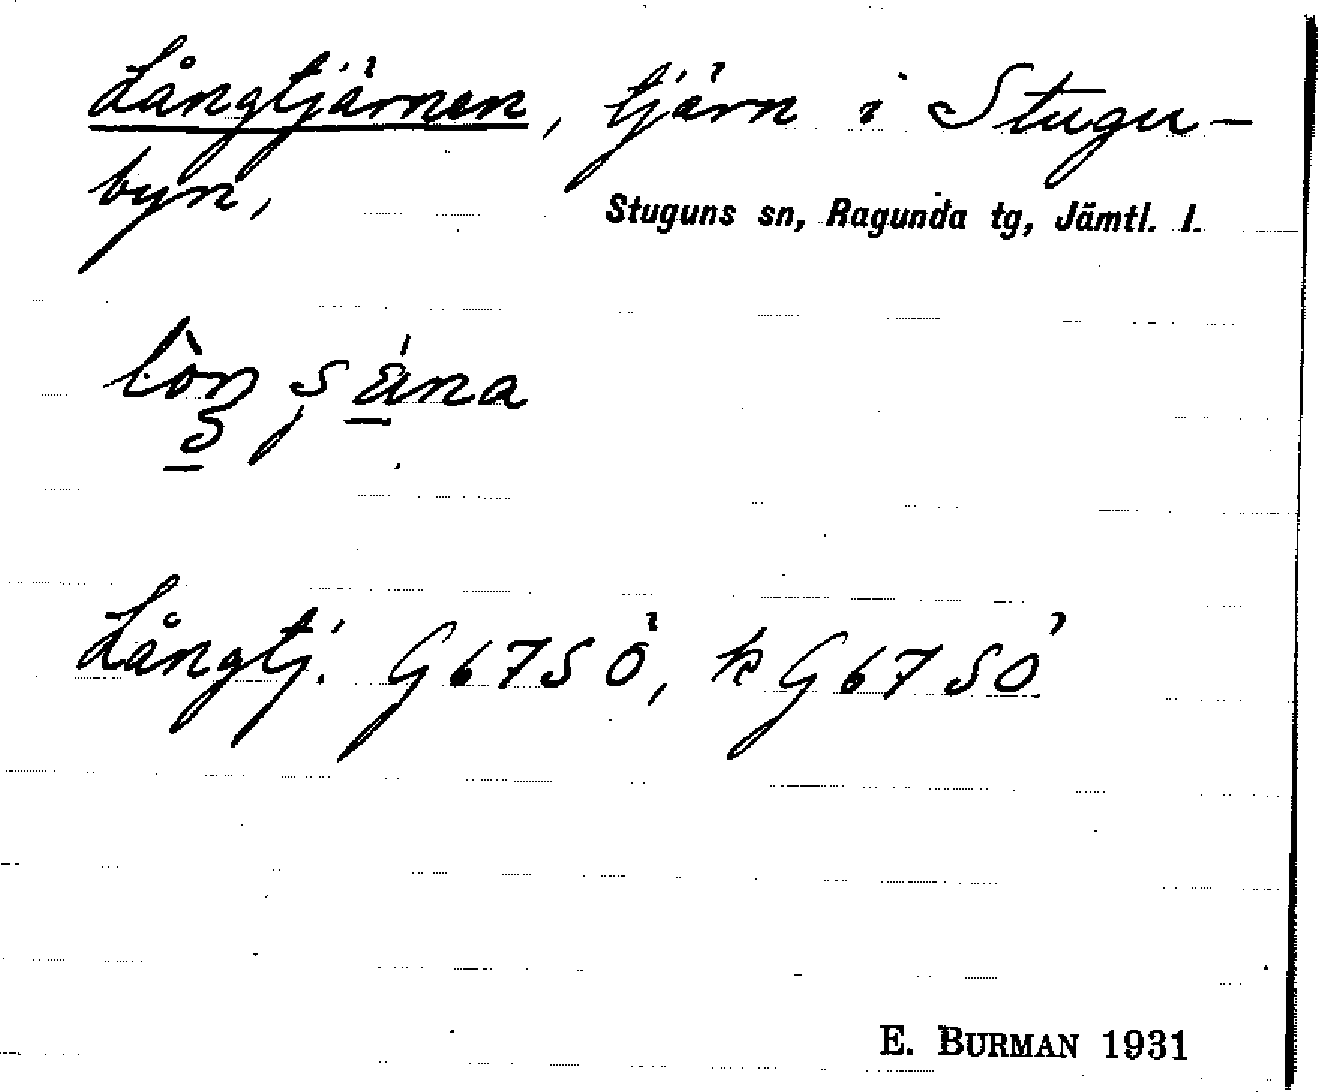 Långtjärnen, tjärn i Stugu-
byn,
Stuguns sn, Ragunda tg, Jämtl. l.
Långtj. G67SÖ, kG67SÖ
E. BURMAN 1931